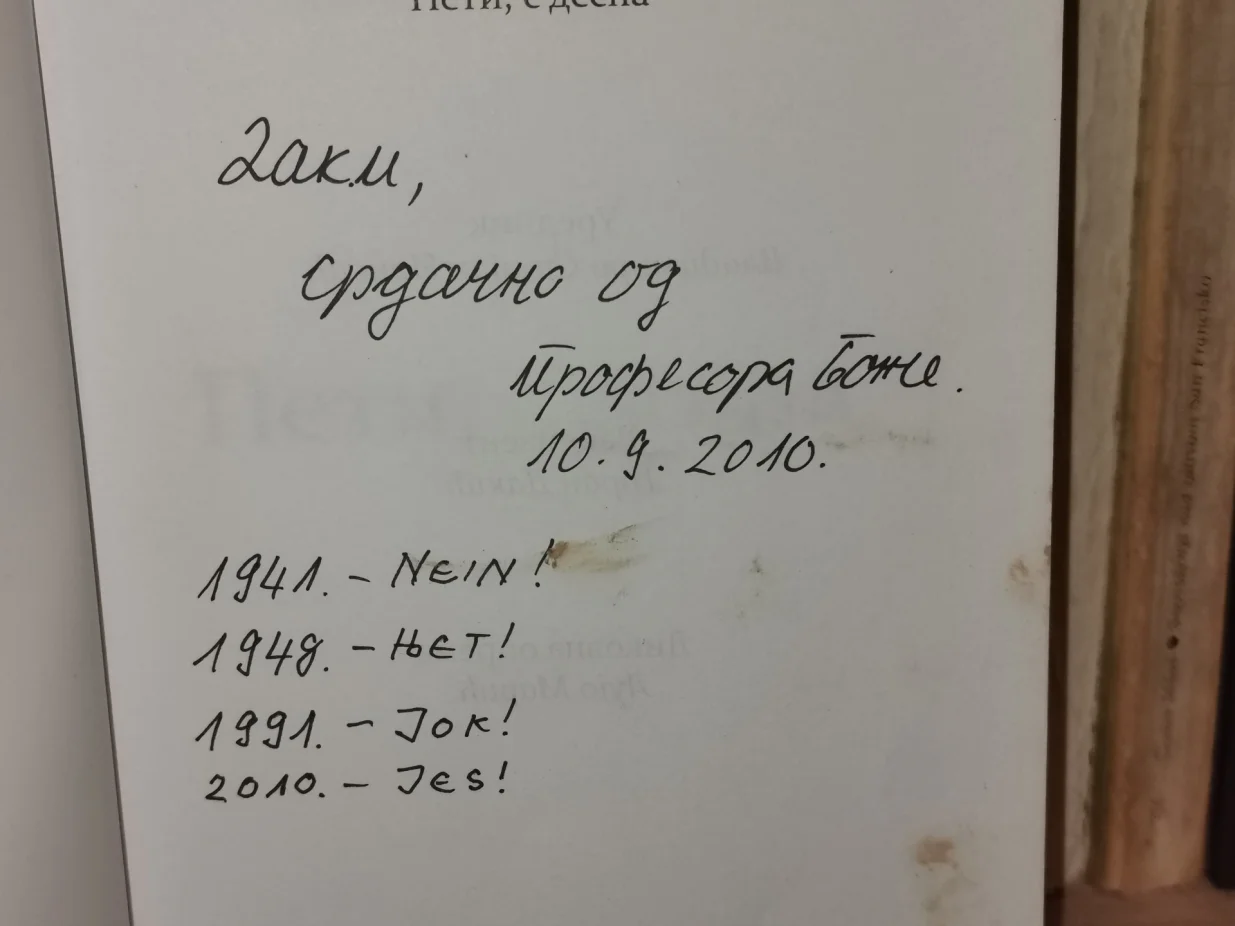 Пети, с десна
Гаки,
срдачно од
професора Боже.
10. 9. 2010.
1941. – NEIN!
1948. – ЊЕТ!
1991. – ЈОК!
2010. – JES!